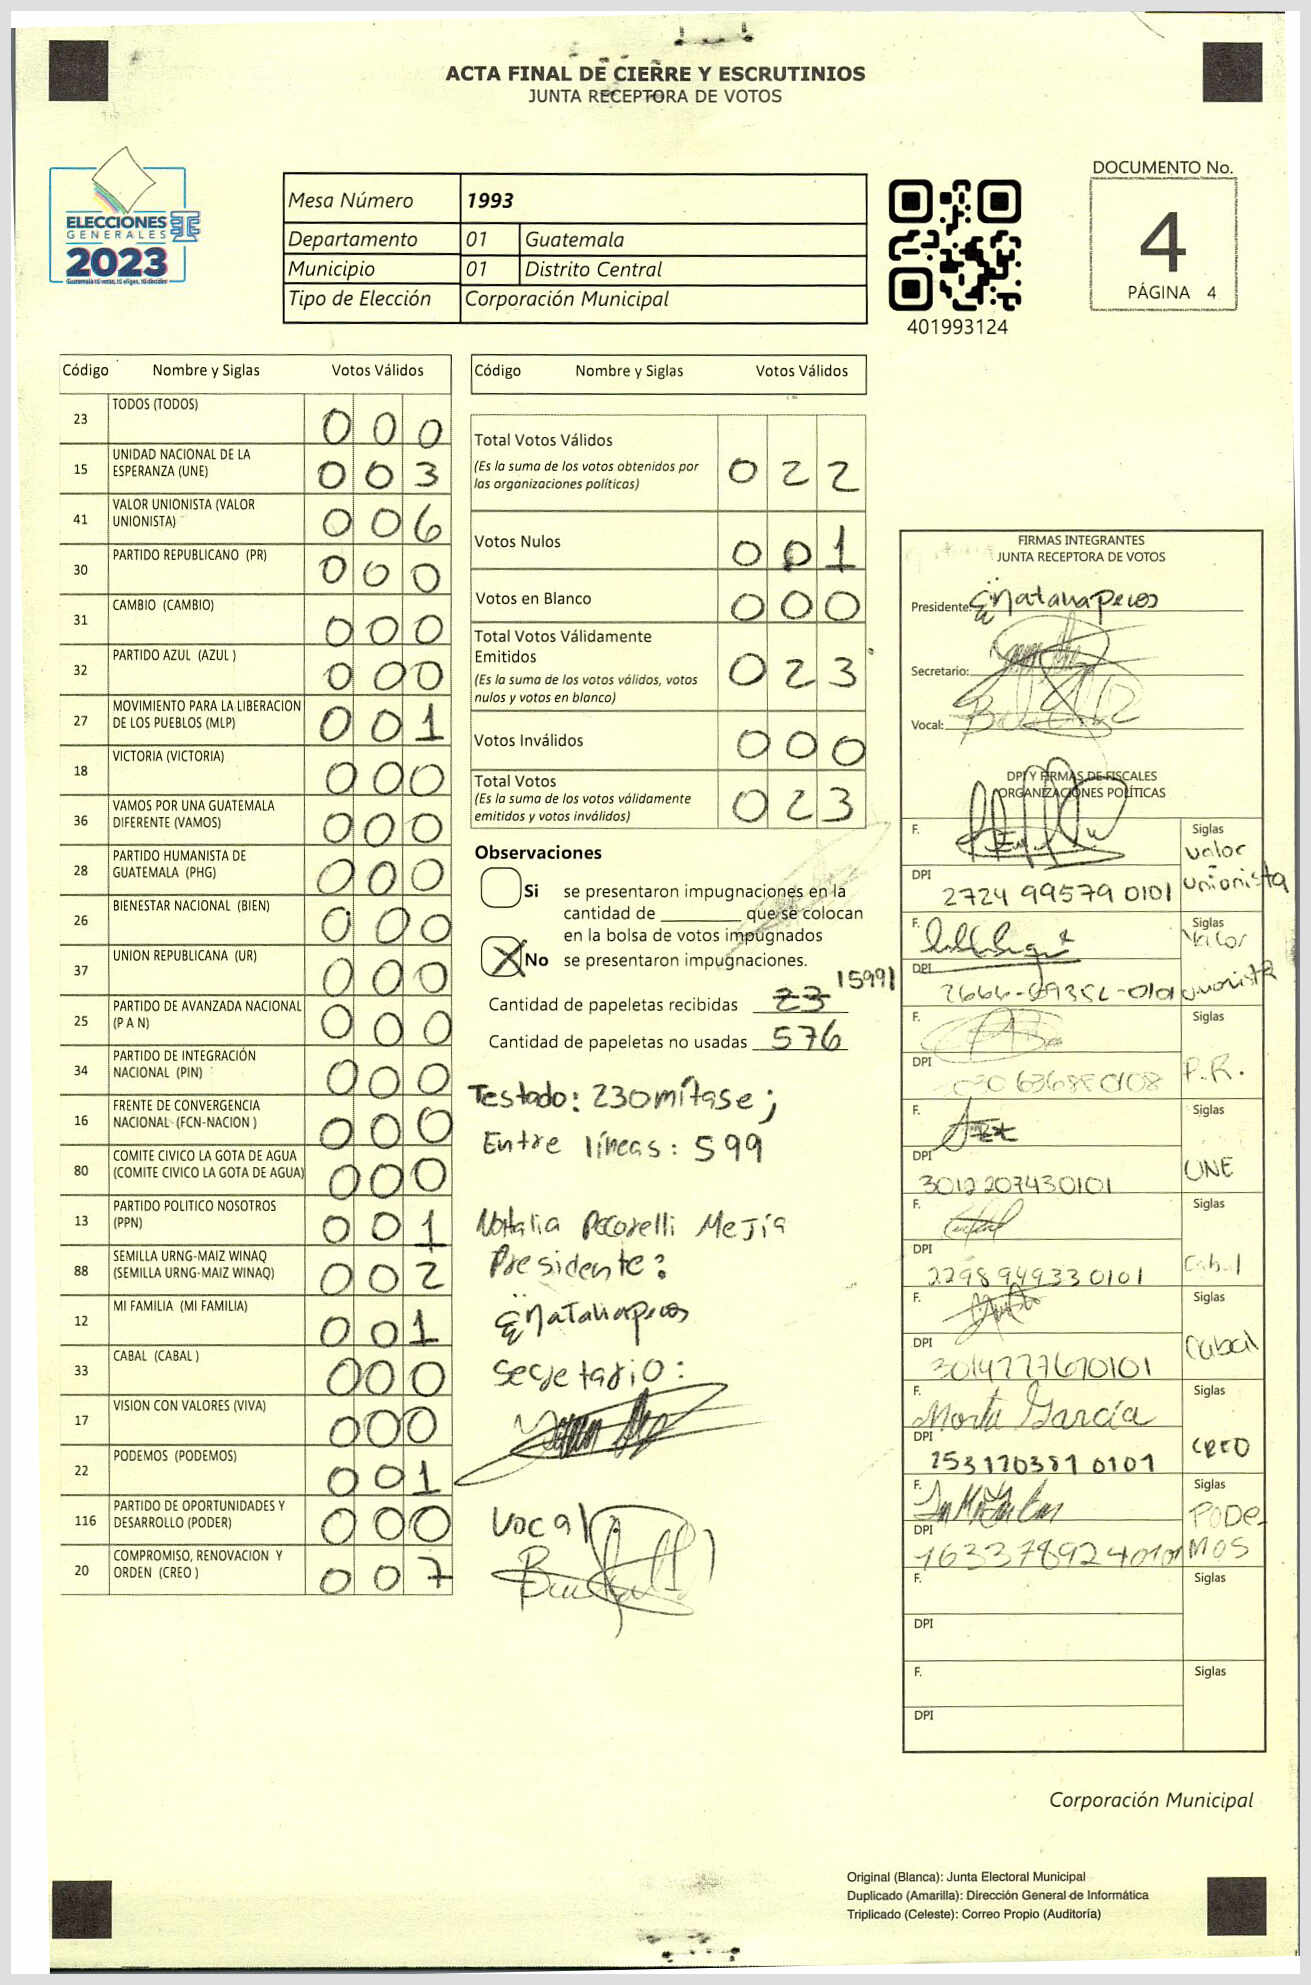 ACTA FINAL DE CIERRE Y ESCRUTINIOS
JUNTA RECEPTORA DE VOTOS
ELECCIONES
GENERALES
2023
Mesa Número 1993
Departamento 01 Guatemala
Municipio 01 Distrito Central
Tipo de Elección Corporación Municipal
401993124
DOCUMENTO No.
4
PÁGINA 4
Código Nombre y Siglas Votos Válidos
23 TODOS (TODOS) 0 0 0
15 UNIDAD NACIONAL DE LA ESPERANZA (UNE) 0 0 3
41 VALOR UNIONISTA (VALOR UNIONISTA) 0 0 6
30 PARTIDO REPUBLICANO (PR) 0 0 0
31 CAMBIO (CAMBIO) 0 0 0
32 PARTIDO AZUL (AZUL ) 0 0 0
27 MOVIMIENTO PARA LA LIBERACION DE LOS PUEBLOS (MLP) 0 0 1
18 VICTORIA (VICTORIA) 0 0 0
36 VAMOS POR UNA GUATEMALA DIFERENTE (VAMOS) 0 0 0
28 PARTIDO HUMANISTA DE GUATEMALA (PHG) 0 0 0
26 BIENESTAR NACIONAL (BIEN) 0 0 0
37 UNION REPUBLICANA (UR) 0 0 0
25 PARTIDO DE AVANZADA NACIONAL (P A N) 0 0 0
34 PARTIDO DE INTEGRACIÓN NACIONAL (PIN) 0 0 0
16 FRENTE DE CONVERGENCIA NACIONAL (FCN-NACION ) 0 0 0
80 COMITE CIVICO LA GOTA DE AGUA (COMITE CIVICO LA GOTA DE AGUA) 0 0 0
13 PARTIDO POLITICO NOSOTROS (PPN) 0 0 1
88 SEMILLA URNG-MAIZ WINAQ (SEMILLA URNG-MAIZ WINAQ) 0 0 2
12 MI FAMILIA (MI FAMILIA) 0 0 1
33 CABAL (CABAL ) 0 0 0
17 VISION CON VALORES (VIVA) 0 0 0
22 PODEMOS (PODEMOS) 0 0 1
116 PARTIDO DE OPORTUNIDADES Y DESARROLLO (PODER) 0 0 0
20 COMPROMISO, RENOVACION Y ORDEN (CREO ) 0 0 7
Código Nombre y Siglas Votos Válidos
Total Votos Válidos
(Es la suma de los votos obtenidos por
las organizaciones políticas) 0 2 2
Votos Nulos 0 0 1
Votos en Blanco 0 0 0
Total Votos Válidamente
Emitidos
(Es la suma de los votos válidos, votos
nulos y votos en blanco) 0 2 3
Votos Inválidos 0 0 0
Total Votos
(Es la suma de los votos válidamente
emitidos y votos inválidos) 0 2 3
Observaciones
Si se presentaron impugnaciones en la
cantidad de ________ que se colocan
en la bolsa de votos impugnados
X No se presentaron impugnaciones.
Cantidad de papeletas recibidas 23 |599|
Cantidad de papeletas no usadas 576
Testado: 23 omítase;
Entre líneas: 599
Natalia Pecorelli Mejía
Presidente:
Nataliapecos
Secretario:
Vocal
FIRMAS INTEGRANTES
JUNTA RECEPTORA DE VOTOS
Presidente: Nataliapecos
Secretario:
Vocal:
DPI Y FIRMAS DE FISCALES
ORGANIZACIONES POLÍTICAS
F. Siglas Valor Unionista
DPI 2724 99579 0101
F. Siglas Valor Unionista
DPI
F. Siglas P.R.
DPI
F. Siglas UNE
DPI 3012 207430101
F. Siglas Cabal
DPI 2298 949330101
F. Siglas Cabal
DPI 3014777670101
F. Marta García Siglas CREO
DPI 2531703810101
F. Siglas PODEMOS
DPI 1633789240101
F. Siglas
DPI
F. Siglas
DPI
Corporación Municipal
Original (Blanca): Junta Electoral Municipal
Duplicado (Amarilla): Dirección General de Informática
Triplicado (Celeste): Correo Propio (Auditoría)